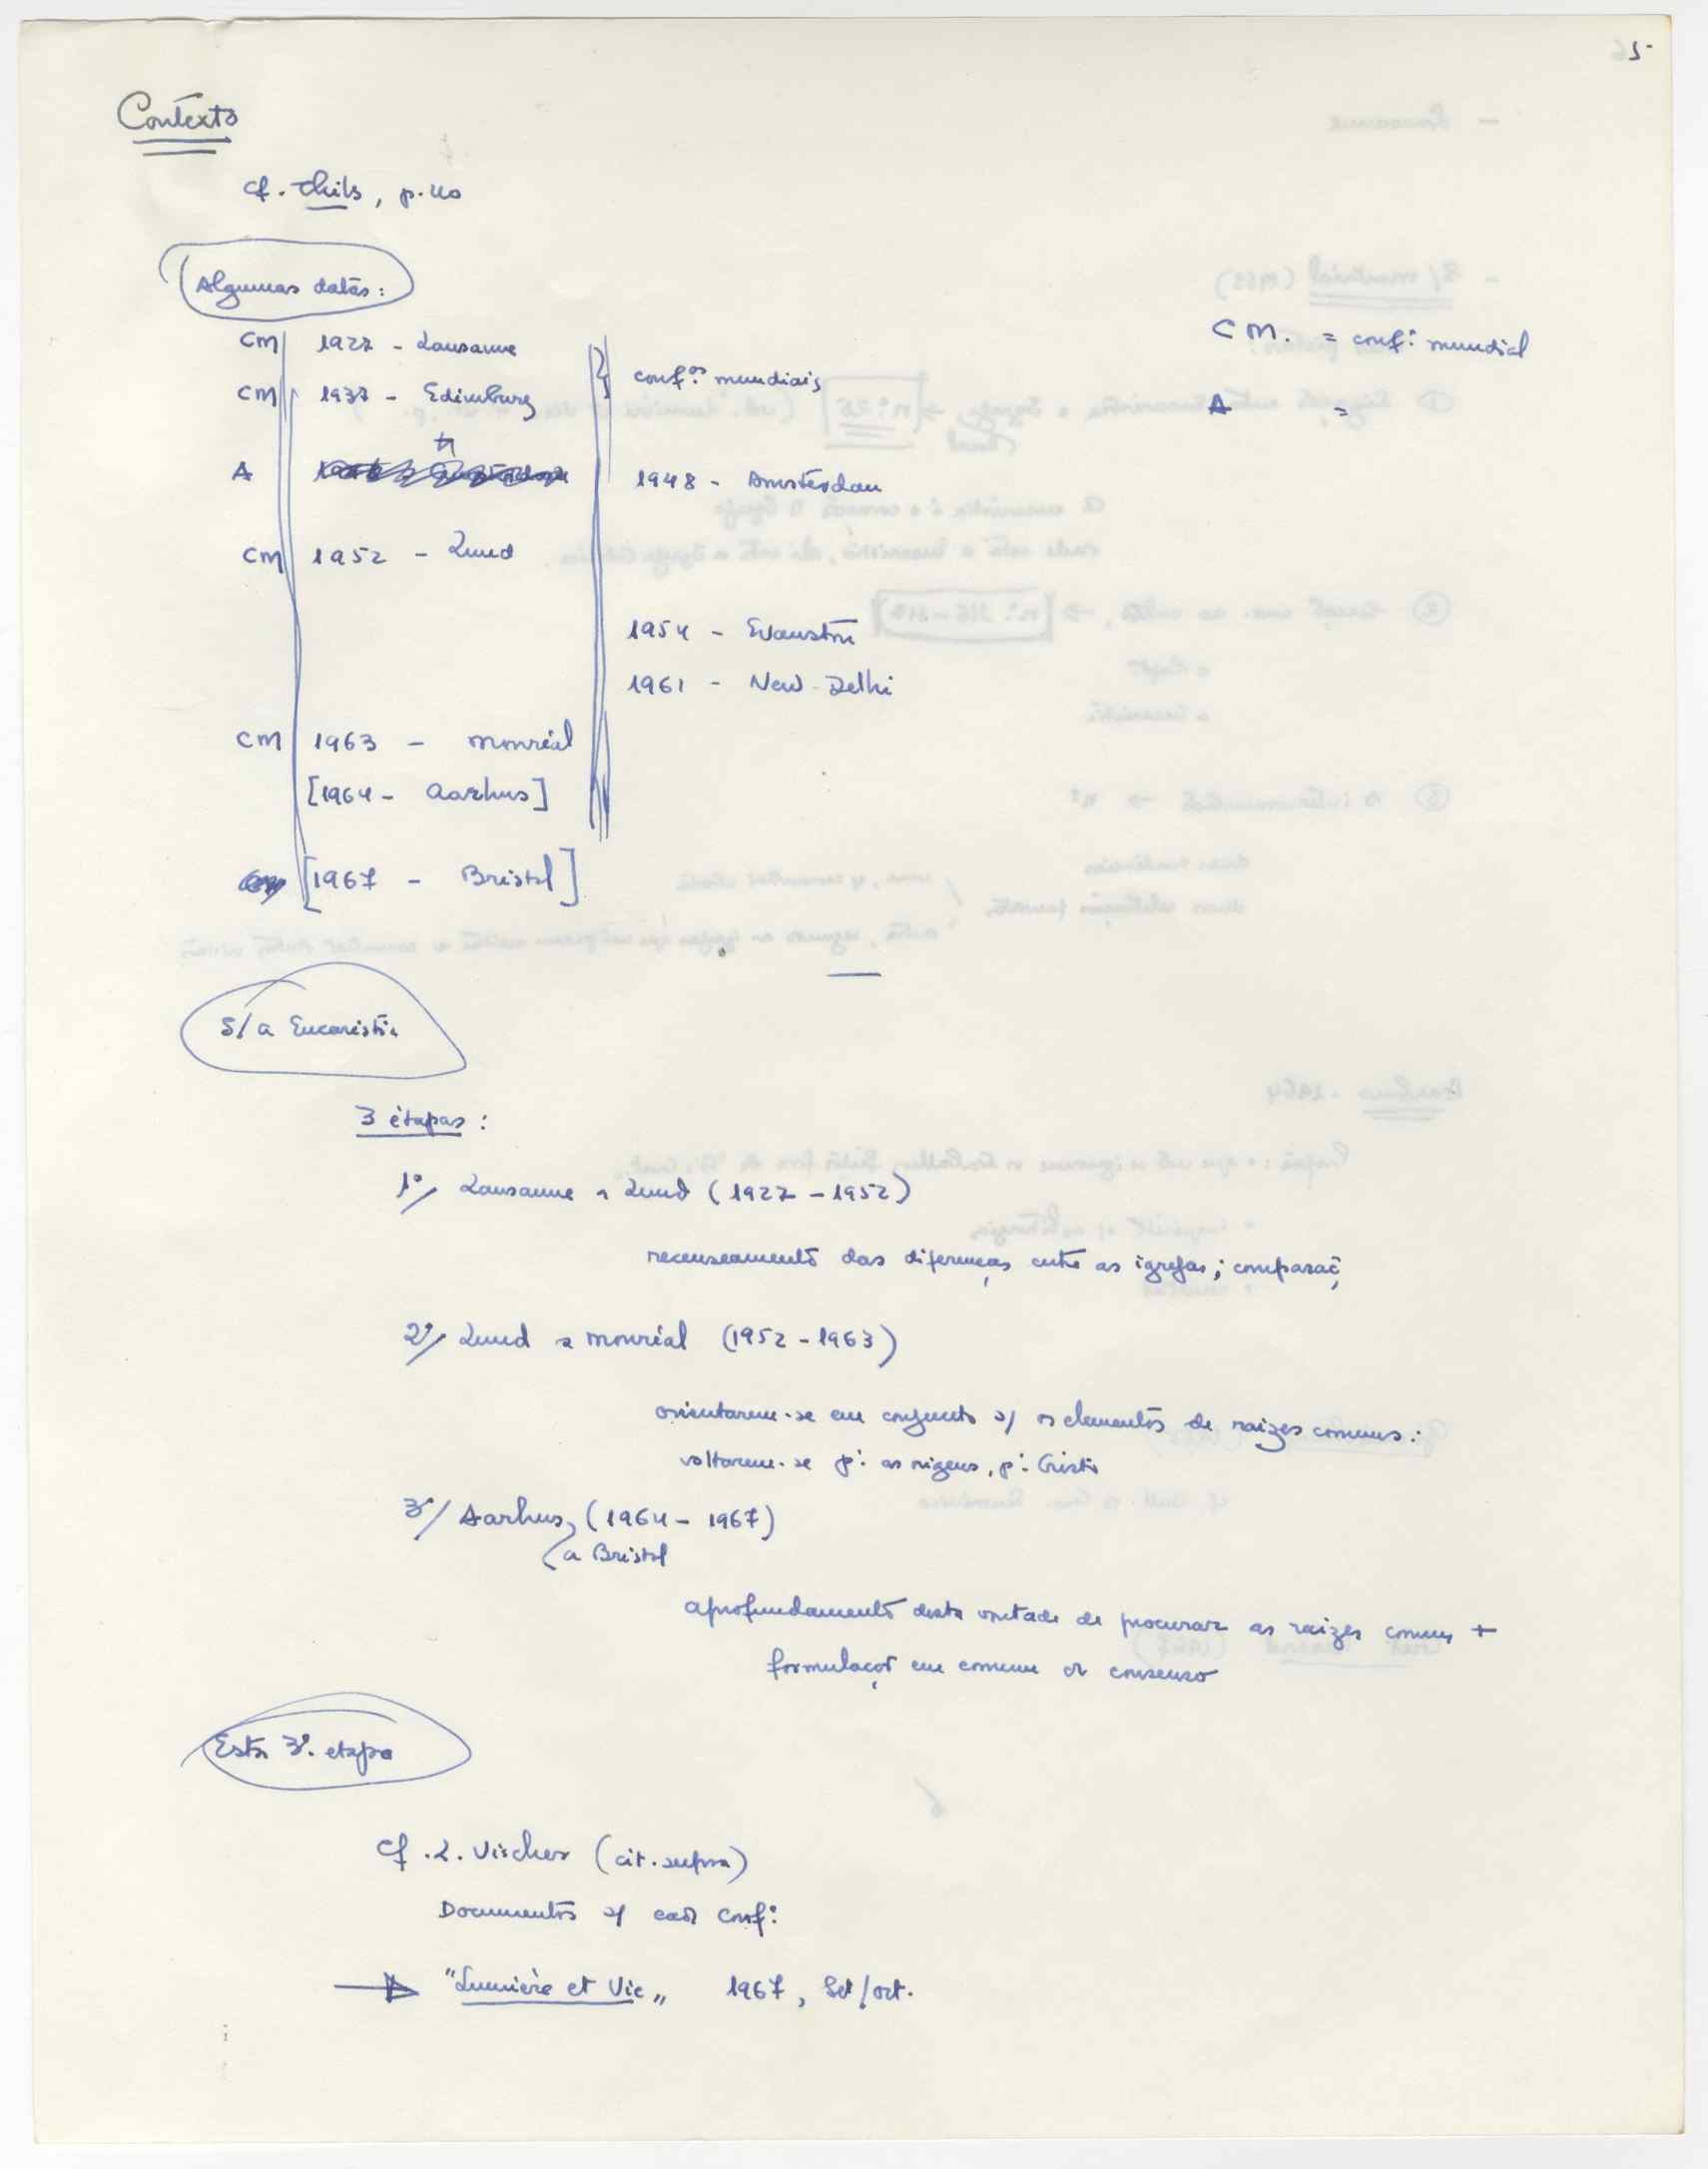 5
Contexto
Cf. Thils, p. 40
Algumas datas:
CM 1927 - Lausanne
CM 1937 - Edimburg
conf.os mundiais
C M. = conf.: mundial
A =
A
1948 - Amsterdau
CM 1952 - Lund
1954 - Evanston
1961 - New-Delhi
CM 1963 - Monréal
[1964 - Aarhus]
[1967 - Bristol]
S/ a Eucaristia
3 étapas:
1º/ Lausanne a Lund (1927 - 1952)
recenseamento das diferenças entre as igrejas; comparaç
2º/ Lund a Monréal (1952 - 1963)
orientarem-se em conjunto s/ os elementos de raizes comuns:
voltarem-se p: as origens, p: Cristo
3º/ Aarhus, (1964 - 1967)
a Bristol
aprofundamento desta vontade de procurar as raizes comuns +
formulaço em comum o consenso
Esta 3ª. etapa
Cf. L. Vischer (cit. supra)
Documentos s/ cada conf:
"Lumière et Vie" 1967, Set/oct.